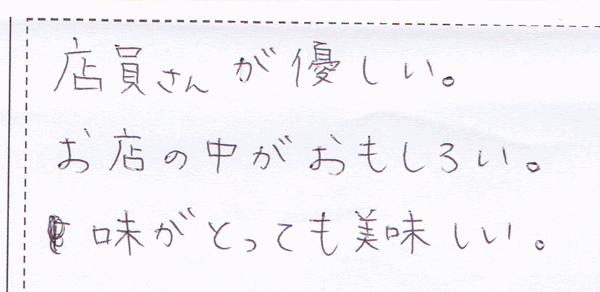 店員さんが優しい。
お店の中がおもしろい。
味がとっても美味しい。